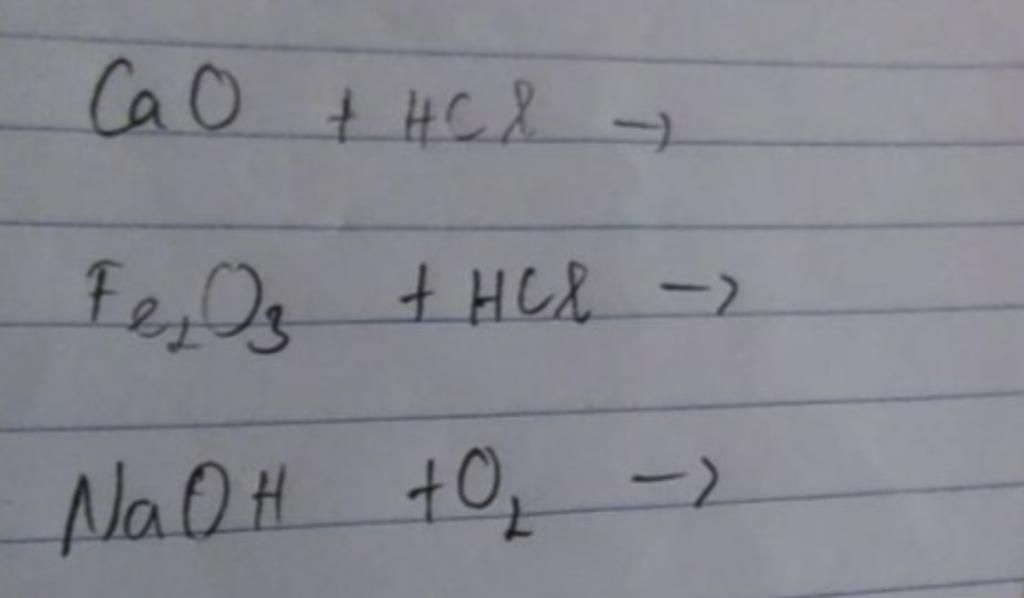 CaO + HCl →
Fe₂O₃ + HCl →
NaOH + O₂ →